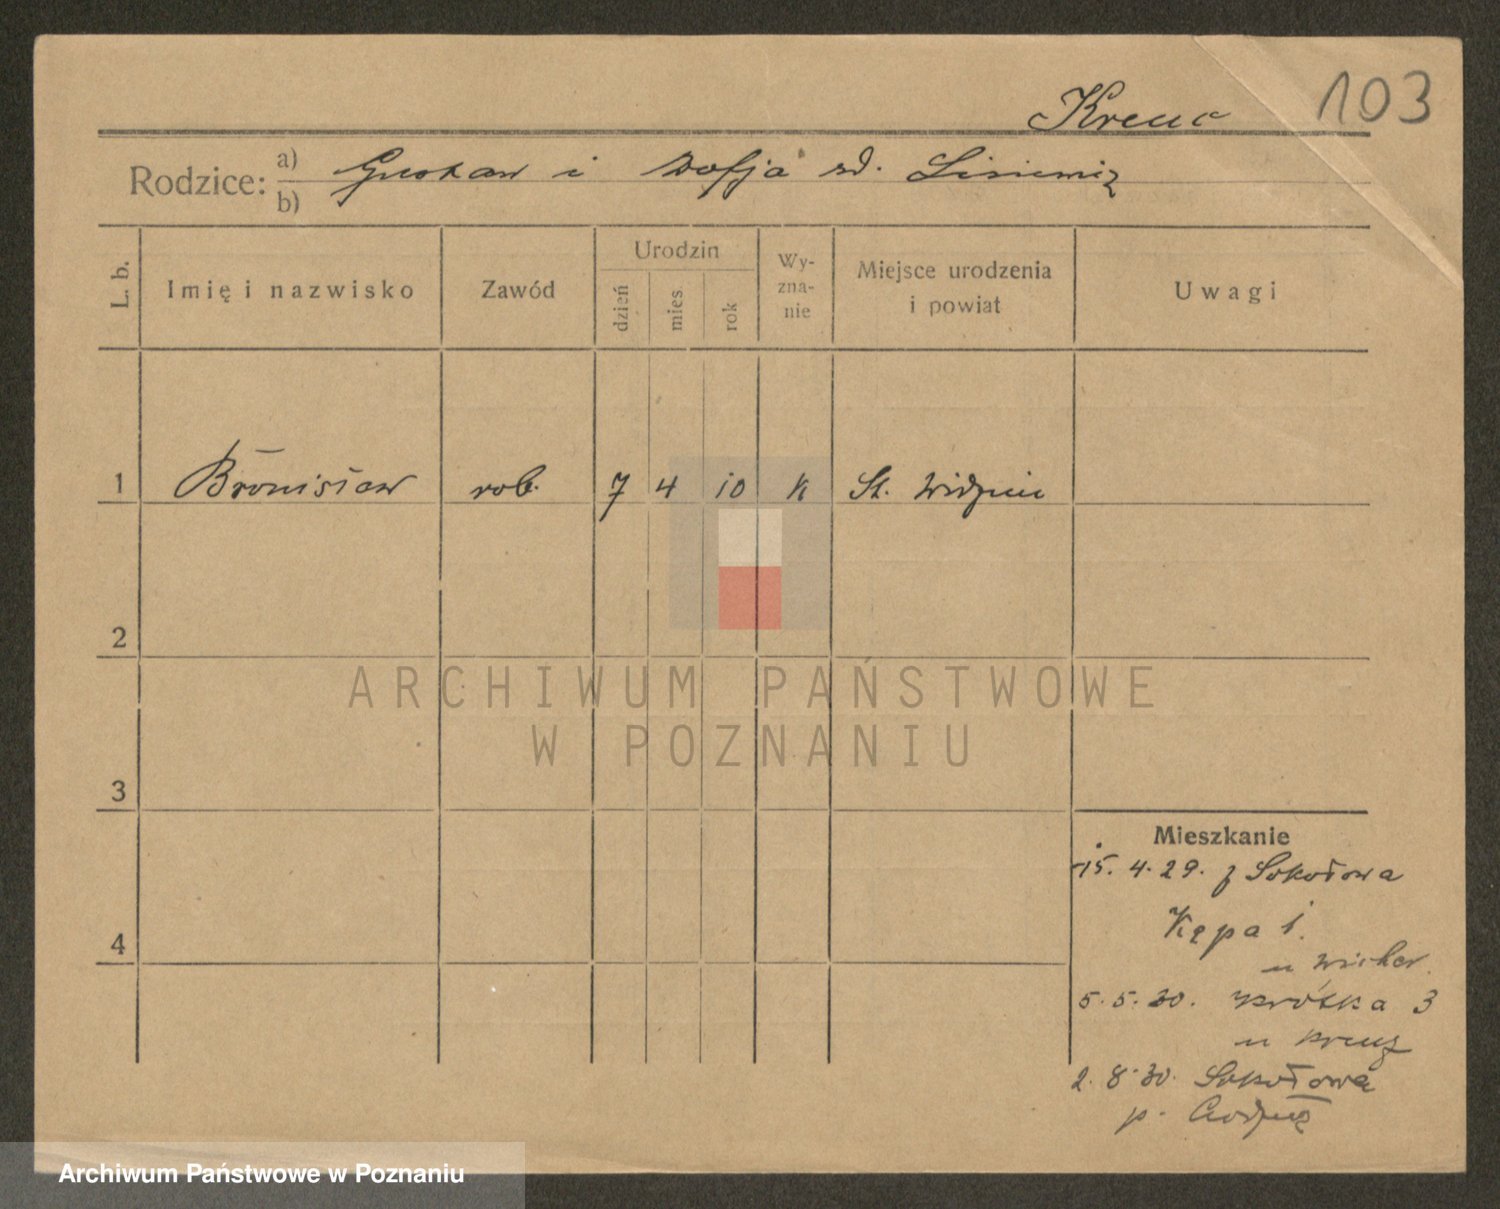 103
Krenc
Rodzice: a) Gustaw i Zofja
b)
L. b.
Imię i nazwisko
Zawód
Urodzin
dzień
mies.
rok
Wy-
zna-
nie
Miejsce urodzenia
i powiat
Uwagi
1 Bronisław rob. 7 4 10 k St.
2
3
4
ARCHIWUM PAŃSTWOWE
W POZNANIU
Mieszkanie
15. 4. 29. z Sokołowa
Kępa 1.
u
5. 5. 30. Krótka 3
u Krenz
2. 8. 30. Sokołowa
p.
Archiwum Państwowe w Poznaniu